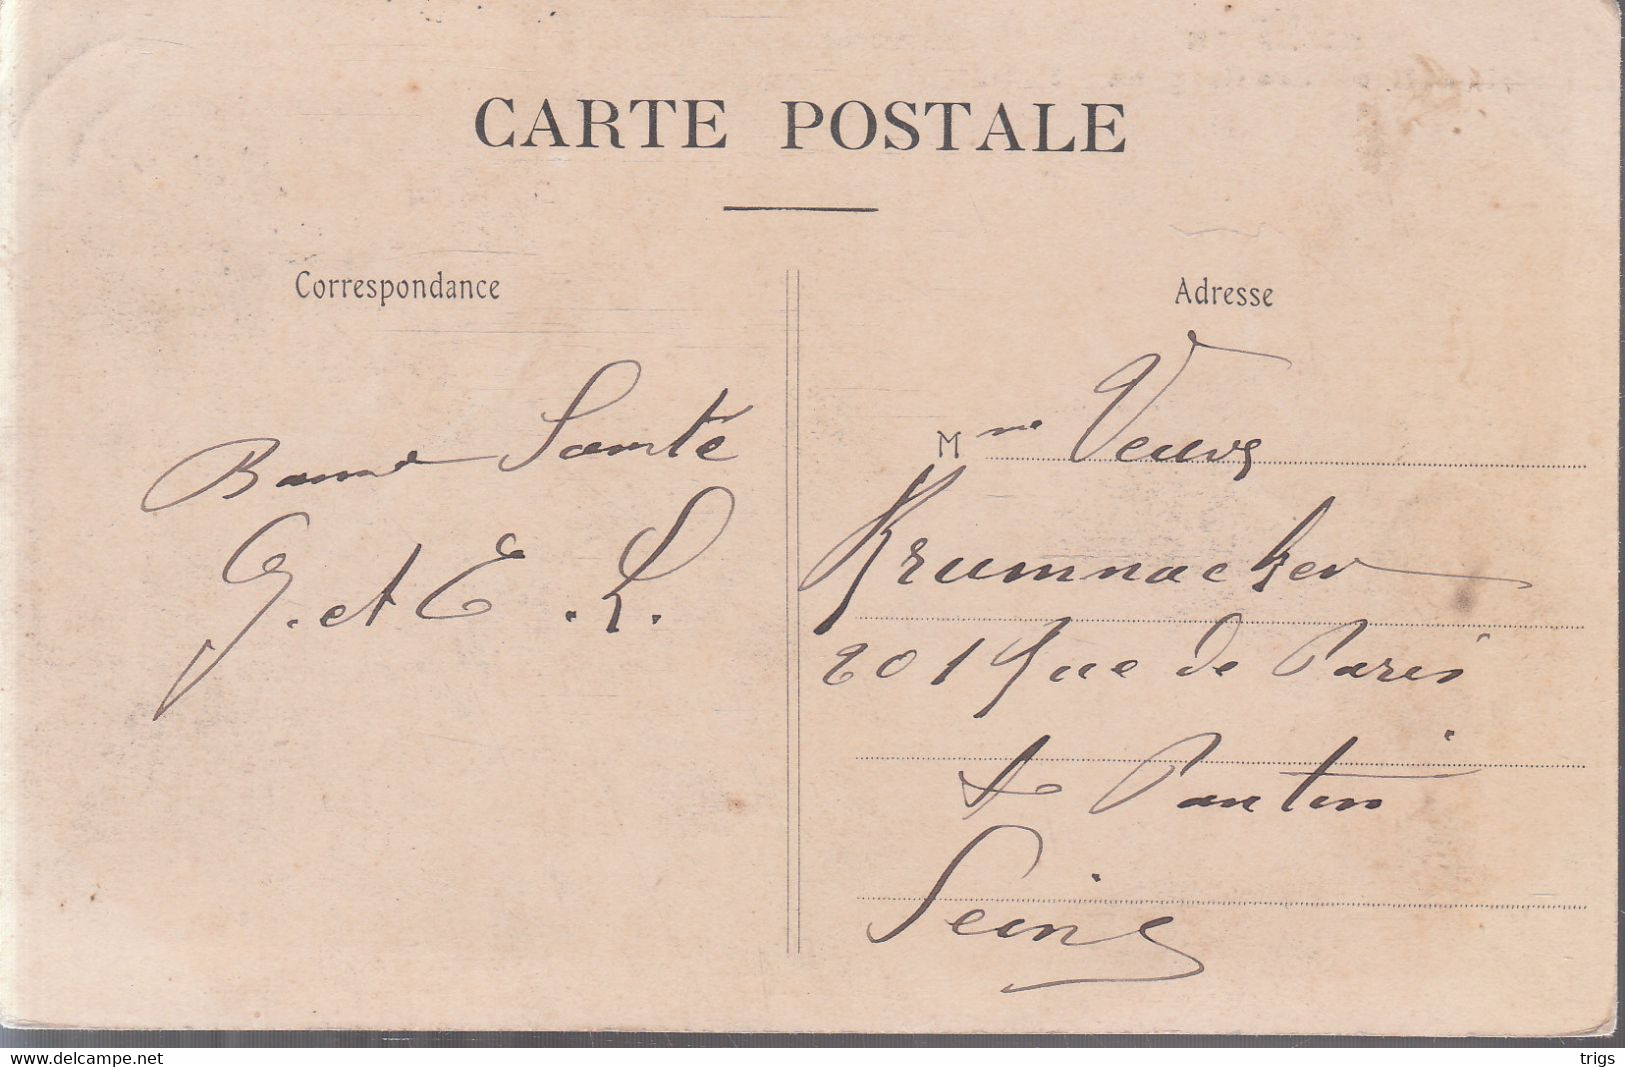 CARTE POSTALE
Correspondance
Bonne Santé
G. et E. L.
Adresse
Mme Veuve
Krumnacker
201 Rue de Paris
Pantin
Seine
www.delcampe.net
trigs